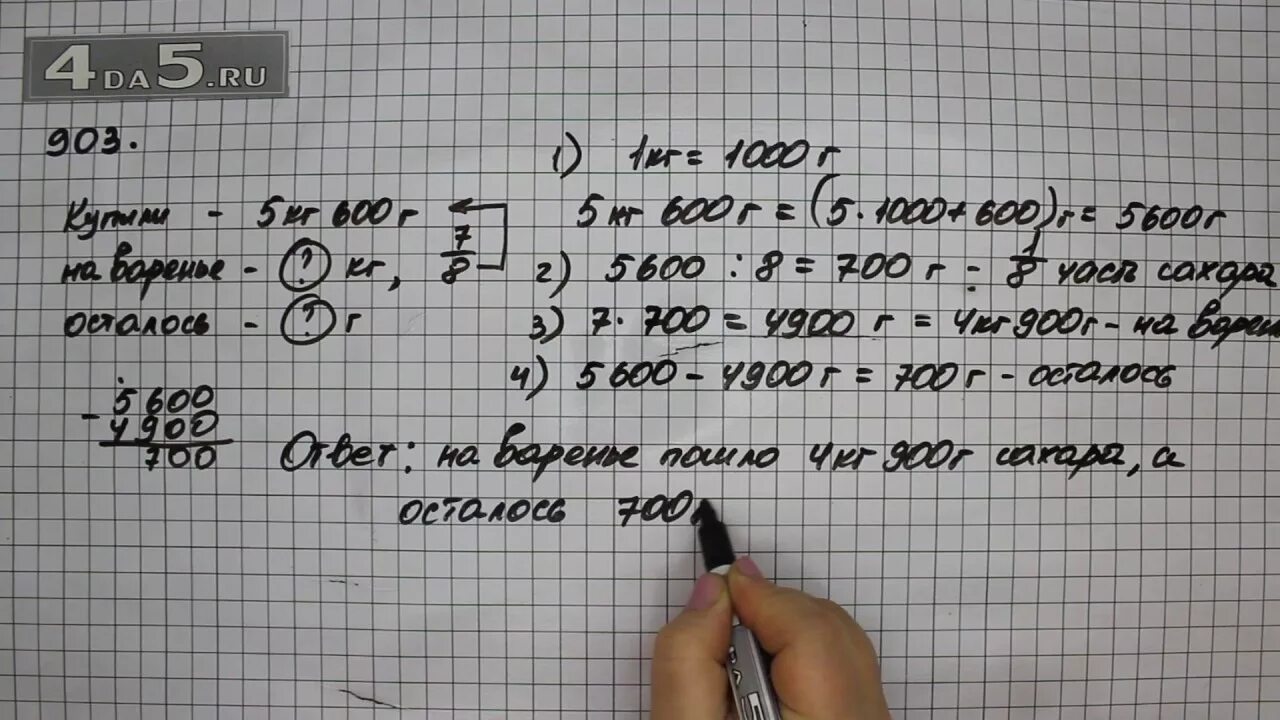 4DA5.RU
903.
Купили - 5кг 600г
7/8
на варенье - ? кг,
осталось - ? г
5600
- 4900
700
1) 1кг = 1000г
5кг 600г = (5·1000+600)г = 5600г
2) 5600 : 8 = 700 г - 1/8 часть сахара
3) 7·700 = 4900 г = 4кг 900г - на варен
4) 5600 - 4900 г = 700 г - осталось
Ответ: на варенье пошло 4кг 900г сахара, а
осталось 700